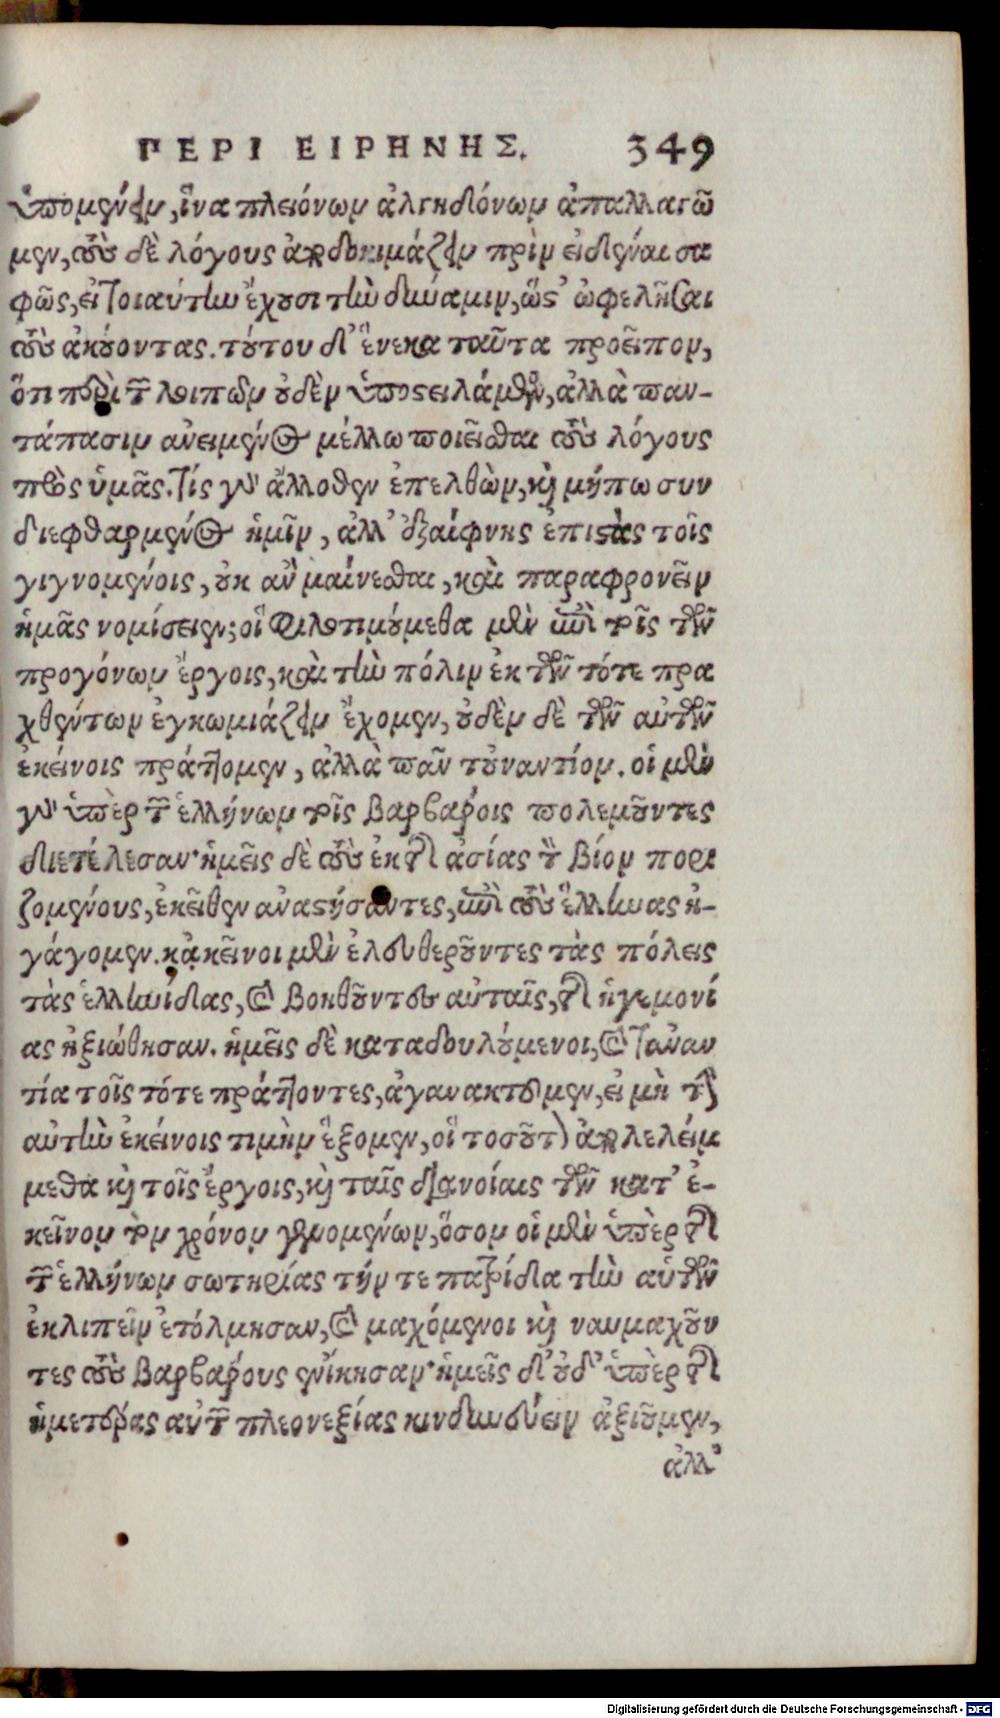 ΠΕΡΙ ΕΙΡΗΝΗΣ. 349
ὑπομένειν, ἵνα πλειόνων ἀλγηδόνων ἀπαλλαγῶ
μεν, τοὺς δὲ λόγους ἀποδοκιμάζειν πρὶν εἰδέναι σα
φῶς, εἰ τοιαύτην ἔχουσι τὴν δύναμιν, ὥστ' ὠφελῆσαι
τοὺς ἀκούοντας. τούτου δ' ἕνεκα ταῦτα προεῖπον,
ὅτι περὶ τῶν λοιπῶν οὐδὲν ὑποστειλάμενος, ἀλλὰ παν-
τάπασιν ἀνειμένος μέλλω ποιεῖσθαι τοὺς λόγους
πρὸς ὑμᾶς. τίς γὰρ ἄλλοθεν ἐπελθὼν, καὶ μήπω συν
διεφθαρμένος ἡμῖν, ἀλλ' ἐξαίφνης ἐπιστὰς τοῖς
γιγνομένοις, οὐκ ἂν μαίνεσθαι, καὶ παραφρονεῖν
ἡμᾶς νομίσειεν; οἳ φιλοτιμούμεθα μὲν ἐπὶ τοῖς τῶν
προγόνων ἔργοις, καὶ τὴν πόλιν ἐκ τῶν τότε πρα
χθέντων ἐγκωμιάζειν ἔχομεν, οὐδὲν δὲ τῶν αὐτῶν
ἐκείνοις πράττομεν, ἀλλὰ πᾶν τοὐναντίον. οἱ μὲν
γὰρ ὑπὲρ τῶν ἑλλήνων τοῖς βαρβάροις πολεμοῦντες
διετέλεσαν· ἡμεῖς δὲ τοὺς ἐκ τῆς ἀσίας τὸν βίον πορι
ζομένους, ἐκεῖθεν ἀναστήσαντες, ἐπὶ τοὺς ἕλληνας ἠ-
γάγομεν. κἀκεῖνοι μὲν ἐλευθεροῦντες τὰς πόλεις
τὰς ἑλληνίδας, καὶ βοηθοῦντες αὐταῖς, τῆς ἡγεμονί
ας ἠξιώθησαν. ἡμεῖς δὲ καταδουλούμενοι, καὶ τἀναν
τία τοῖς τότε πράττοντες, ἀγανακτοῦμεν, εἰ μὴ τὴν
αὐτὴν ἐκείνοις τιμὴν ἕξομεν, οἳ τοσοῦτον ἀπολελείμ
μεθα καὶ τοῖς ἔργοις, καὶ ταῖς διανοίαις τῶν κατ' ἐ-
κεῖνον τὸν χρόνον γενομένων, ὅσον οἱ μὲν ὑπὲρ τῆς
τῶν ἑλλήνων σωτηρίας τήν τε πατρίδα τὴν αὑτῶν
ἐκλιπεῖν ἐτόλμησαν, καὶ μαχόμενοι καὶ ναυμαχοῦν
τες τοὺς βαρβάρους ἐνίκησαν· ἡμεῖς δ' οὐδ' ὑπὲρ τῆς
ἡμετέρας αὐτῶν πλεονεξίας κινδυνεύειν ἀξιοῦμεν,
ἀλλ'
Digitalisierung gefördert durch die Deutsche Forschungsgemeinschaft - DFG